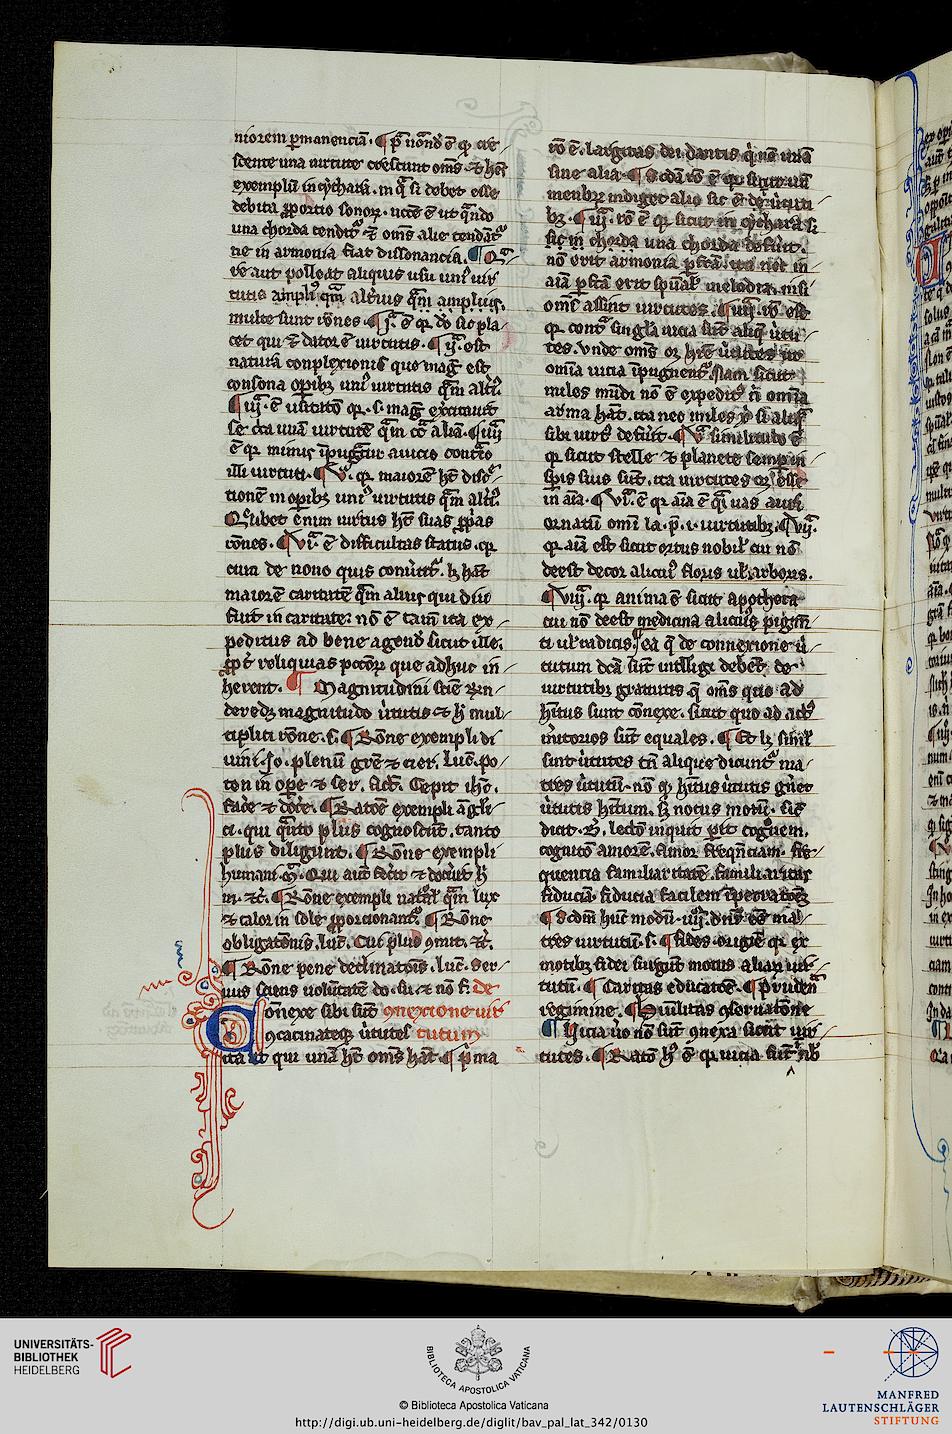 niorem permanenciā. ¶ p̄ᵃ nōand' ē qꝫ cre
scente una uirtute crescunt oms̄. & huius
exemplū in cythara. in qᵃ si debet esse
debita ꝓportio sonoꝝ. necē ē ut qᵃndo
una chorda tenditᵘʳ & oms̄ alie tendāt᷑
ne in armonia fiat dissonancia. ¶ C
re aut polleat aliquis usu uniꝰ uir
tutis ampliꝰ qᵃm alteriꝰ qᵃm ampliꝰ
multe sunt rōnes. ¶ jᵃ. ē qꝛ do sic pla
cet qui & dator ē uirtutis. ¶ ijᵃ. est
naturā conplexionis que mag̊ est
consona oꝑibꝫ uniꝰ uirtutis qᵃm altiꝰ.
¶ iijᵃ. ē
se circa unā uirtutē qᵃm circa aliā. ¶ iiijᵃ
ē qꝛ minus īpugnatur a uicio contᵃrio
illi uirtuti. ¶ Vᵃ. qꝛ maiorē ht̄ discᵉ
tionē in oꝑibꝫ uniꝰ uirtutis qᵃm altiꝰ.
Quelibet enim uirtus ht̄ suas ꝓprias
rōnes. ¶ Viᵃ. ē difficultas status. qꝛ
cum de nouo quis conuertitᵘʳ. lꝫ hāt
maiorē caritatē qᵃm alius qui diu
fuit in caritate. nō ē tam̄ ita ex
peditus ad bene agend' sicut ille.
ꝓpt̄ reliquias pctōꝝ que adhuc in
herent. ¶ Magnitudini sciē Rn
deredꝫ magnitudo uirtutis & h̄ mul
tiplici rōne. s. ¶ Rōne exempli di
uini. Jo. plenū grē & uer. Luc̄. po
ten in oꝑe & ser. Act̄. Cepit ihc̄.
face & doce. ¶ Ratōe exempli āgeli
ci. qui qᵃnto plus cognoscūt. tanto
plus diligunt. ¶ Rōne exempli
humani. M̄. Qui aut̄ fecit & docuit h̄
m. &c̄. ¶ Rōne exempli naturał qᵃm lux
& calor in sole ꝓporcionantᵘʳ. ¶ Rōne
obligatōnis. luc̄. Cui plus ꝯmit. &c̄.
¶ Rōne pene declinatōis. luc̄. Ser
uus sciens uolūtatē do. su. & nō f. de
Connexe sibi sūt ꝯnexione uir
ꝯcatinateqꝫ uirtutes tutum
ita ut qui unā ht̄ oms̄ hāt ¶ prima
rō ē. largitas dei dantis qui nō unā
sine alia. ¶ Scdᵃ rō ē qꝛ sicut unū
menbꝝ indiget alio sic ē de uirtuti
bꝫ. ¶ iijᵃ. rō ē qꝛ sicut in cythara si
sic in chorda una chorda defuit.
nō erit armonia ꝑfcā. ita nec in
aīa ꝑfcā erit spūał melodia. nisi
oms̄ assint uirtutes. ¶ iiijᵃ. rō est
qꝛ contᵃ singła uicia sūt aliqᵉ uirtu
tes. vnde oms̄ oꝫ hr̄e uirtutes ut
omīa uicia īpugnentᵘʳ. Nam sicut
miles mūdi nō ē expeditꝰ nisi omīa
arma hāt. ita nec miles xi si aliqᵃ
sibi uirtꝰ defuit. ¶ Vᵃ similitudo ē
qꝛ sicut stelle & planete semper in
speris suis sūt. ita uirtutes oꝫ esse
in aīa. ¶ Viᵃ. ē qꝛ aīa ē qᵃsi uas auri
ornatū omni la. p. i. uirtutibꝫ. ¶ Vijᵃ.
qꝛ aīa est sicut ortus nobił cui nō
deest decor alicuiꝰ floris uł arboris.
¶ Viijᵃ. qꝛ anima ē sicut apotheca
cui nō deest medicina alicuiꝰ pigmē
ti uł radicis. ¶ ea q̄ de connexione uir
tutum dcā sūt intelligi debēt de
uirtutibꝫ gratuitis q̄ oms̄ quo ad
hītus sunt cōnexe. sicut quo ad actꝰ
mītorios sūt equales. ¶ Et lꝫ simił
sint uirtutes tn̄ alique dicuntᵘʳ ma
tres uirtutū. nō qꝫ hītus uirtutis gn̄et
uirtutis hītum. sꝫ motus motū. sic
dicit. B̄. lectō inquit parit cognōem.
cognitō amorē. Amor freqn̄ciam. fre
quencia familiaritatē. familiaritas
fiduciā. fiducia facilem īpetratōeꝫ
¶ Scdm̄ hūc modū. iiijᵒʳ. dn̄r ēe ma
tres uirtutū. s. ¶ fides origīe qꝛ ex
motibꝫ fidei surgūt motus aliaꝝ uir
tutū. ¶ Caritas educatōe. ¶ Prudencia
regimine. ¶ Humilitas ꝯseruatōne
¶ Uicia uo nō sūt ꝯnexa sicut uir
tutes. ¶ Ratō hꝰ ē qꝛ uicia sūt
UNIVERSITÄTS-
BIBLIOTHEK
HEIDELBERG
BIBLIOTECA APOSTOLICA VATICANA
© Biblioteca Apostolica Vaticana
http://digi.ub.uni-heidelberg.de/diglit/bav_pal_lat_342/0130
MANFRED
LAUTENSCHLÄGER
STIFTUNG